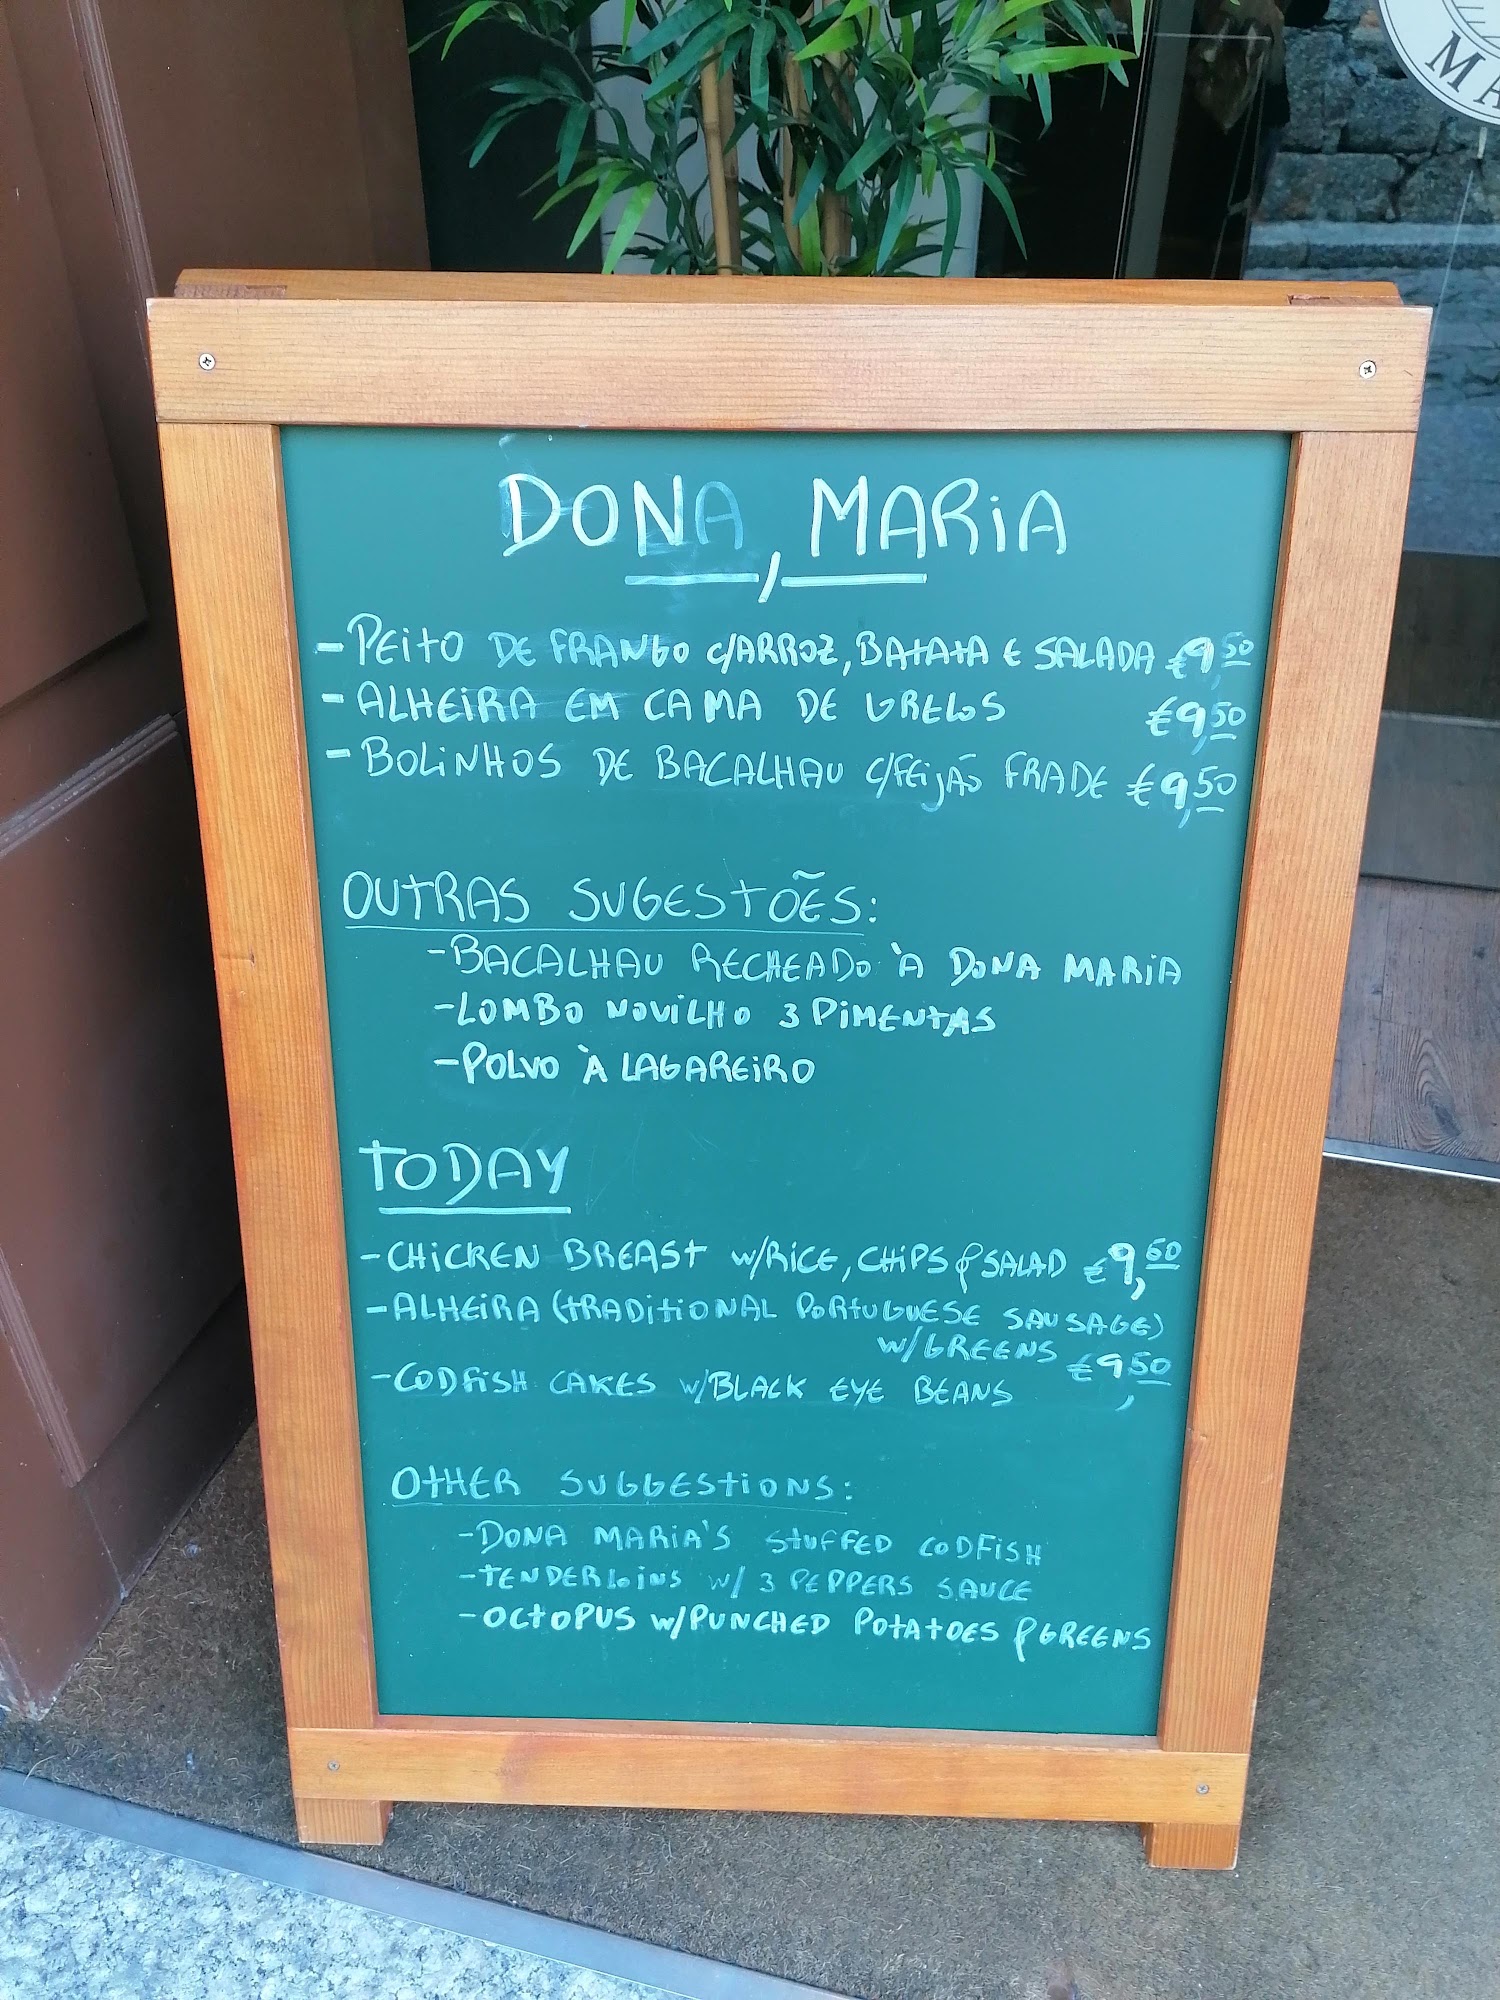 MA
DONA, MARIA
- PEITO DE FRANGO C/ARROZ, BATATA E SALADA €9,50
- ALHEIRA EM CAMA DE GRELOS €9,50
- BOLINHOS DE BACALHAU C/FEIJÃO FRADE €9,50
OUTRAS SUGESTÕES:
- BACALHAU RECHEADO À DONA MARIA
- LOMBO NOVILHO 3 PIMENTAS
- POLVO À LAGAREIRO
TODAY
- CHICKEN BREAST W/RICE, CHIPS & SALAD €9,50
- ALHEIRA (TRADITIONAL PORTUGUESE SAUSAGE)
W/GREENS €9,50
- CODFISH CAKES W/BLACK EYE BEANS
OTHER SUGGESTIONS:
- DONA MARIA'S STUFFED CODFISH
- TENDERLOINS W/ 3 PEPPERS SAUCE
- OCTOPUS W/PUNCHED POTATOES & GREENS